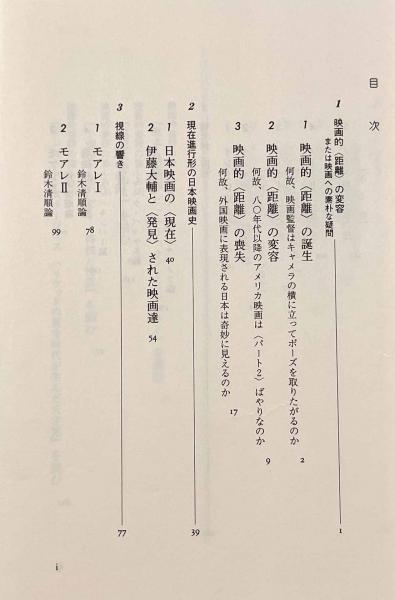 目次
1 映画的〈距離〉の変容 1
または映画への素朴な疑問
1 映画的〈距離〉の誕生
何故、映画監督はキャメラの横に立ってポーズを取りたがるのか 2
2 映画的〈距離〉の変容
何故、八〇年代以降のアメリカ映画は〈パート2〉ばやりなのか 9
3 映画的〈距離〉の喪失
何故、外国映画に表現される日本は奇妙に見えるのか 17
2 現在進行形の日本映画史 39
1 日本映画の〈現在〉 40
2 伊藤大輔と〈発見〉された映画達 54
3 視線の響き 77
1 モアレI
鈴木清順論 78
2 モアレII
鈴木清順論 99
i